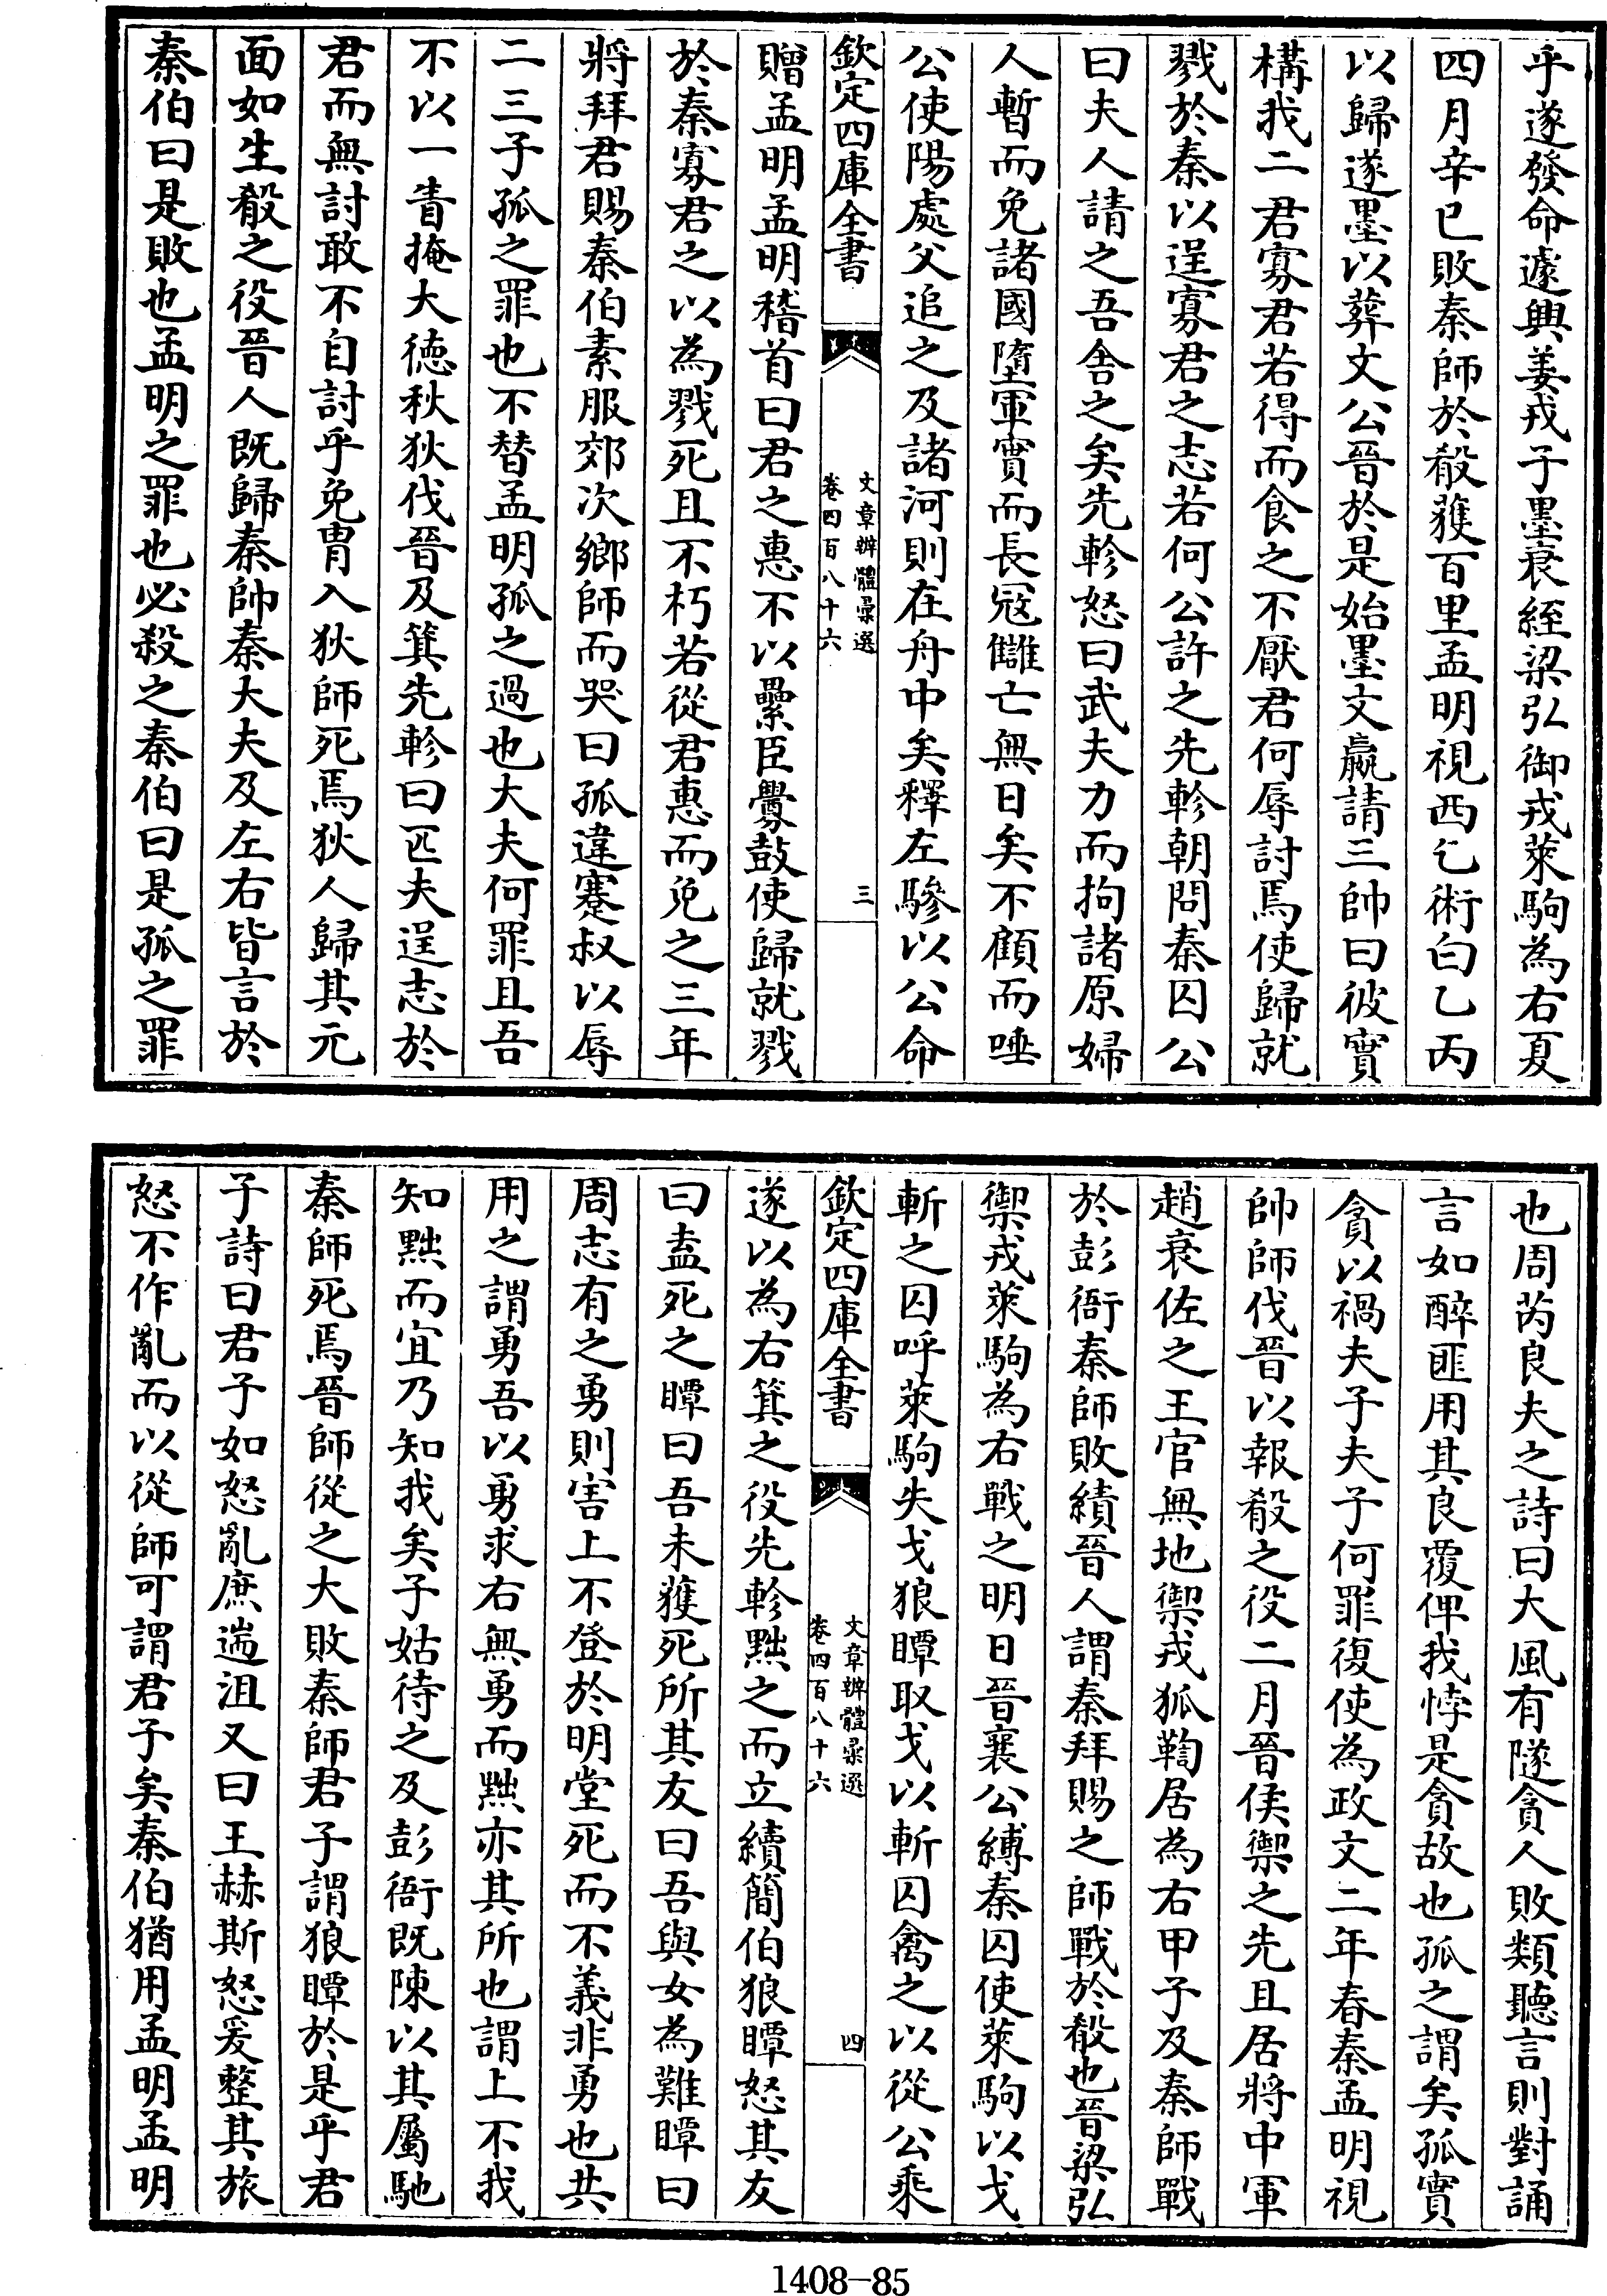 乎遂發命遽興姜戎子墨衰絰梁弘御戎萊駒為右夏
四月辛已敗秦師於殽獲百里孟明視西乞術白乙丙
以歸遂墨以葬文公晉於是始墨文嬴請三帥曰彼實
構我二君寡君若得而食之不厭君何辱討焉使歸就
戮於秦以逞寡君之志若何公許之先軫朝問秦囚公
曰夫人請之吾舍之矣先軫怒曰武夫力而拘諸原婦
人暫而免諸國墮軍實而長冦讎亡無日矣不顧而唾
公使陽處父追之及諸河則在舟中矣釋左驂以公命
欽定四庫全書
文章辨體彚選
卷四百八十六
三
贈孟明孟明稽首曰君之惠不以纍臣釁鼓使歸就戮
於秦寡君之以為戮死且不朽若從君惠而免之三年
將拜君賜秦伯素服郊次鄉師而哭曰孤違蹇叔以辱
二三子孤之罪也不替孟明孤之過也大夫何罪且吾
不以一眚掩大德秋狄伐晉及箕先軫曰匹夫逞志於
君而無討敢不自討乎免冑入狄師死焉狄人歸其元
面如生殽之役晉人既歸秦帥秦大夫及左右皆言於
秦伯曰是敗也孟明之罪也必殺之秦伯曰是孤之罪
也周芮良夫之詩曰大風有隧貪人敗類聽言則對誦
言如醉匪用其良覆俾我悖是貪故也孤之謂矣孤實
貪以禍夫子夫子何罪復使為政文二年春秦孟明視
帥師伐晉以報殽之役二月晉侯禦之先且居將中軍
趙衰佐之王官無地禦戎狐鞫居為右甲子及秦師戰
於彭衙秦師敗績晉人謂秦拜賜之師戰於殽也晉梁弘
禦戎萊駒為右戰之明日晉襄公縛秦囚使萊駒以戈
斬之囚呼萊駒失戈狼瞫取戈以斬囚禽之以從公乘
欽定四庫全書
文章辨體彚選
卷四百八十六
四
遂以為右箕之役先軫黜之而立續簡伯狼瞫怒其友
曰盍死之瞫曰吾未獲死所其友曰吾與女為難瞫曰
周志有之勇則害上不登於明堂死而不義非勇也共
用之謂勇吾以勇求右無勇而黜亦其所也謂上不我
知黜而宜乃知我矣子姑待之及彭衙既陳以其屬馳
秦師死焉晉師從之大敗秦師君子謂狼瞫於是乎君
子詩曰君子如怒亂庶遄沮又曰王赫斯怒爰整其旅
怒不作亂而以從師可謂君子矣秦伯猶用孟明孟明
1408—85